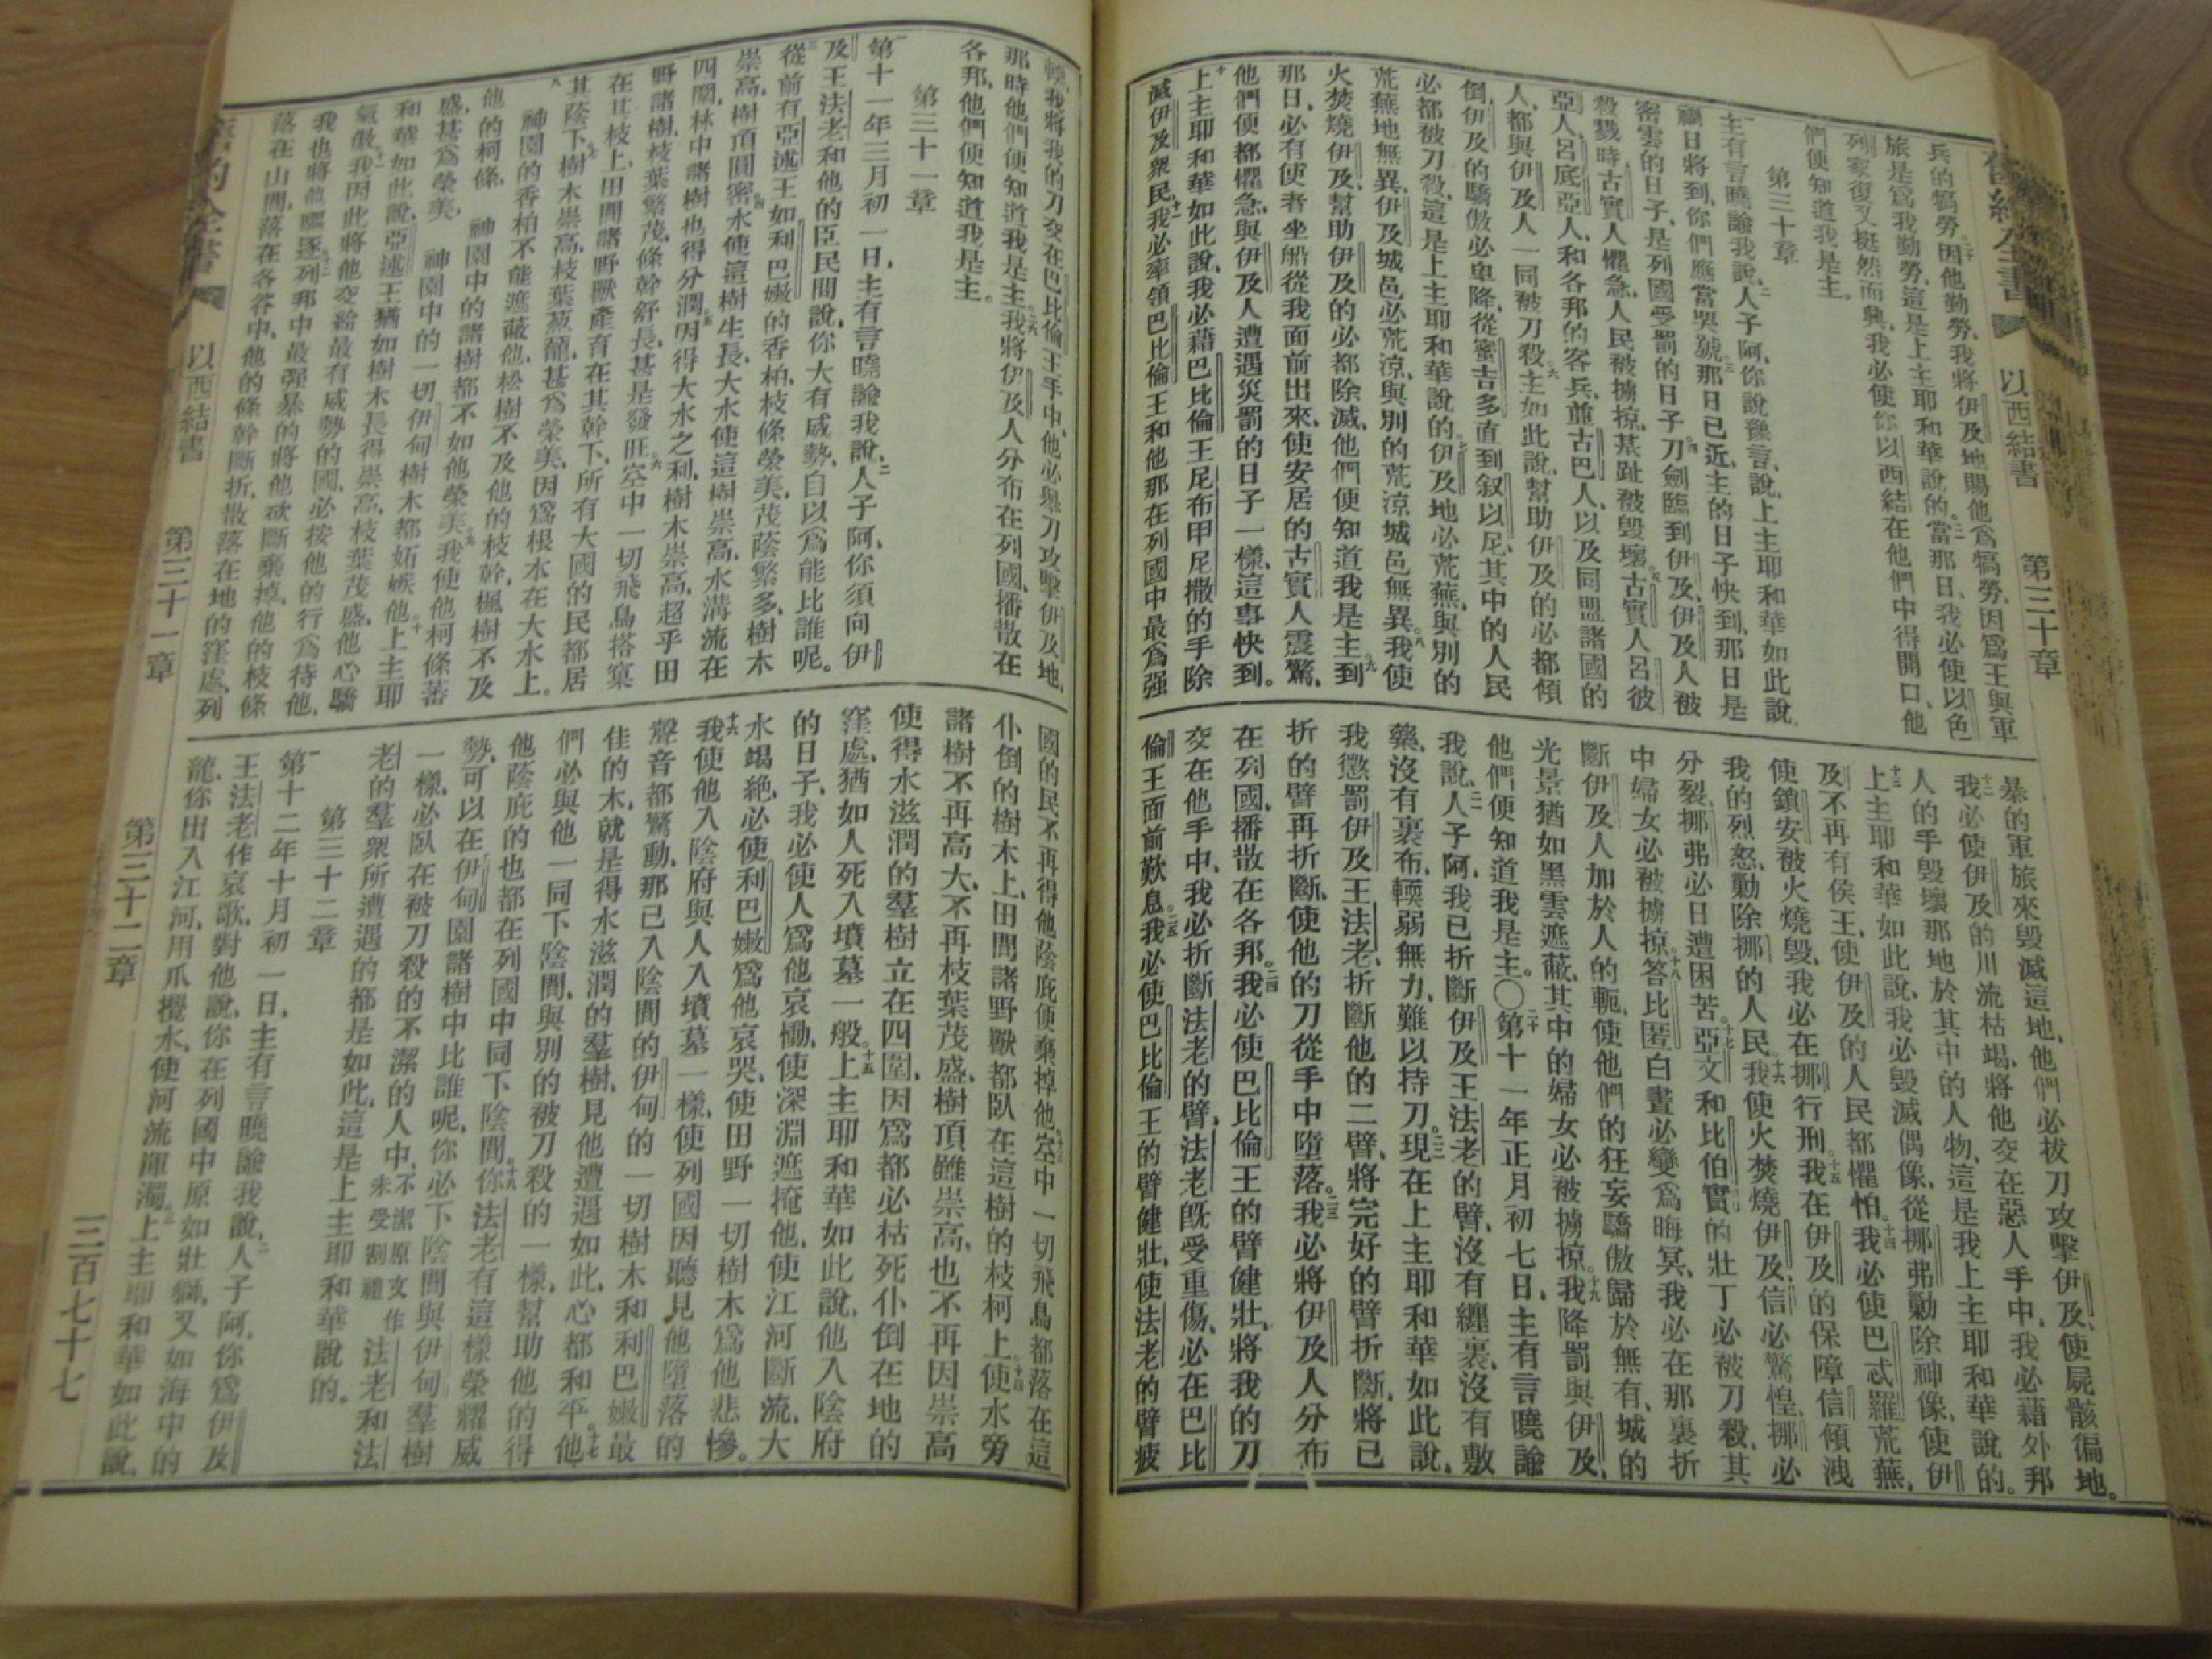 舊約全書 以西結書 第三十章
兵的犒勞二十因他勤勞、我將伊及地賜他爲犒勞、因爲王與軍
旅是爲我勤勞、這是上主耶和華說的。二一當那日、我必使以色
列家復又挺然而興、我必使你以西結在他們中得開口、他
們便知道我是主。
第三十章
一主有言曉諭我說、二人子阿、你說豫言、說、上主耶和華如此說、
禍日將到、你們應當哭號、三那日已近、主的日子快到、那日是
密雲的日子、是列國受罰的日子、四刀劍臨到伊及、伊及人被
殺戮時、古實人懼急、人民被擄掠、基趾被毀壞。五古實人、呂彼
亞人、呂底亞人、和各邦的客兵、並古巴人、以及同盟諸國的
人、都與伊及人一同被刀殺。六主如此說、幫助伊及的必都傾
倒、伊及的驕傲必卑降、從蜜吉多直到叙以尼、其中的人民
必都被刀殺、這是上主耶和華說的。七伊及地必荒蕪、與別的
荒蕪地無異、伊及城邑必荒涼、與別的荒涼城邑無異。八我使
火焚燒伊及、幫助伊及的必都除滅、他們便知道我是主。九到
那日、必有使者坐船從我面前出來、使安居的古實人震驚、
他們便都懼急、與伊及人遭遇災罰的日子一樣、這事快到。
十上主耶和華如此說、我必藉巴比倫王尼布甲尼撒的手除
滅伊及衆民、十一我必率領巴比倫王和他那在列國中最爲强
暴的軍旅來毀滅這地、他們必拔刀攻擊伊及、使屍骸徧地。
十二我必使伊及的川流枯竭、將他交在惡人手中、我必藉外邦
人的手毀壞那地於其中的人物、這是我上主耶和華說的。
十三上主耶和華如此說、我必毀滅偶像、從挪弗勦除神像、使伊
及不再有侯王、使伊及的人民都懼怕。十四我必使巴忒羅荒蕪、
使鎖安被火燒毀、我必在挪行刑。十五我在伊及的保障信傾洩
我的烈怒、勦除挪的人民、十六我使火焚燒伊及、信必驚惶、挪必
分裂、挪弗必日遭困苦。十七亞文和比伯實的壯丁必被刀殺、其
中婦女必被擄掠、十八答比匿白晝必變爲晦冥、我必在那裏折
斷伊及人加於人的軛、使他們的狂妄驕傲歸於無有、城的
光景猶如黑雲遮蔽、其中的婦女必被擄掠、十九我降罰與伊及、
他們便知道我是主。〇二十第十一年正月初七日、主有言曉諭
我說、二一人子阿、我已折斷伊及王法老的臂、沒有纏裹、沒有敷
藥、沒有裹布、輭弱無力、難以持刀。二二現在上主耶和華如此說、
我懲罰伊及王法老、折斷他的二臂、將完好的臂折斷、將已
折的臂再折斷、使他的刀從手中墮落。二三我必將伊及人分布
在列國、播散在各邦。二四我必使巴比倫王的臂健壯、將我的刀
交在他手中、我必折斷法老的臂、法老旣受重傷、必在巴比
倫王面前歎息。二五我必使巴比倫王的臂健壯、使法老的臂疲
輭、我將我的刀交在巴比倫王手中、他必與刀攻擊伊及地、
那時他們便知道我是主。二六我將伊及人分布在列國、播散在
各邦、他們便知道我是主。
第三十一章
一第十一年三月初一日、主有言曉諭我說、二人子阿、你須向伊
及王法老和他的臣民間說、你大有威勢、自以爲能比誰呢。
三從前有亞述王如利巴嫩的香柏、枝條榮美、茂蔭繁多、樹木
崇高、樹頂圓密、四水使這樹生長、大水使這樹崇高、水溝流在
四圍、林中諸樹也得分潤。五因得大水之利、樹木崇高、超乎田
野諸樹、枝葉繁茂、條幹舒長、甚是發旺。六空中一切飛鳥搭窠
在其枝上、田間諸野獸產育在其幹下、所有大國的民都居
其蔭下。七樹木崇高、枝葉葱蘢、甚爲榮美、因爲根本在大水上。
八神園的香柏不能遮蔽他、松樹不及他的枝幹、楓樹不及
他的柯條、神園中的諸樹都不如他榮美、九我使他柯條蕃
盛、甚爲榮美、神園中的一切伊甸樹木都妬嫉他。十上主耶
和華如此說、亞述王猶如樹木長得崇高、枝葉茂盛、他心驕
氣傲、十一我因此將他交給最有威勢的國、必按他的行爲待他、
我也將他驅逐、十二列邦中最强暴的將他砍斷棄掉、他的枝條
落在山間、落在各谷中、他的條幹斷折、散落在地的窪處、列
國的民不再得他蔭庇、便棄掉他。十三空中一切飛鳥都落在這
仆倒的樹木上、田間諸野獸都臥在這樹的枝柯上。十四使水旁
諸樹不再高大、不再枝葉茂盛、樹頂雖崇高、也不再因崇高
使得水滋潤的羣樹立在四圍、因爲都必枯死仆倒在地的
窪處、猶如人死入墳墓一般。十五上主耶和華如此說、他入陰府
的日子、我必使人爲他哀慟、使深淵遮掩他、使江河斷流、大
水竭絶、必使利巴嫩爲他哀哭、使田野一切樹木爲他悲慘。
十六我使他入陰府與人入墳墓一樣、使列國因聽見他墮落的
聲音都驚動、那已入陰間的伊甸的一切樹木和利巴嫩最
佳的木、就是得水滋潤的羣樹、見他遭遇如此、心都和平。十七他
們必與他一同下陰間、與別的被刀殺的一樣、幫助他的得
他蔭庇的也都在列國中同下陰間。十八你法老有這樣榮耀威
勢、可以在伊甸園諸樹中比誰呢、你必下陰間與伊甸羣樹
一樣、必臥在被刀殺的不潔的人中、不潔原文作未受割禮法老和法
老的羣衆所遭遇的都是如此、這是上主耶和華說的。
第三十二章
一第十二年十月初一日、主有言曉諭我說、二人子阿、你爲伊及
王法老作哀歌、對他說、你在列國中原如壯獅、又如海中的
龍、你出入江河、用爪攪水、使河流渾濁。三上主耶和華如此說、
舊約全書 以西結書 第三十一章 第三十二章 三百七十七